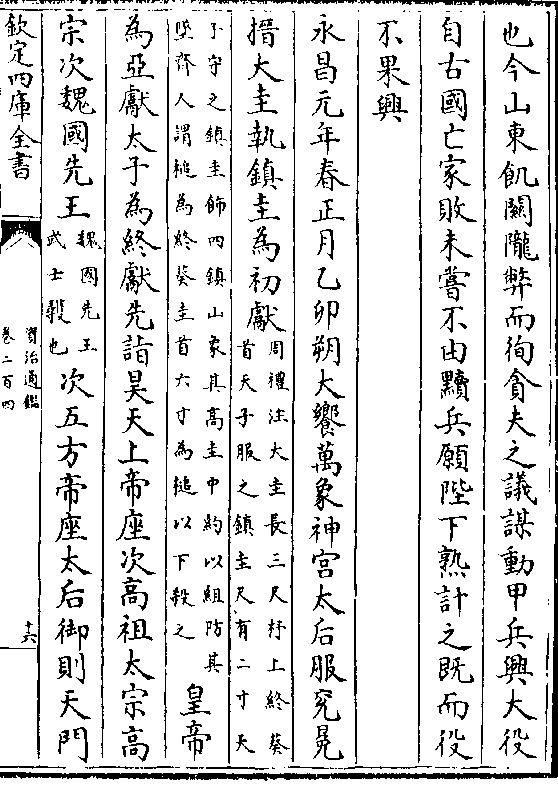 也今山東飢關隴弊而徇貪夫之議謀動甲兵興大役
自古國亡家敗未嘗不由黷兵願陛下熟計之既而役
不果興
永昌元年春正月乙卯朔大饗萬象神宫太后服兖冕
搢大圭執鎮圭為初獻
周禮注大圭長三尺杼上終葵
首天子服之鎮圭尺有二寸天
子守之鎮圭飾四鎮山象其髙圭中約以組防其
墜齊人謂槌為終葵圭首六寸為槌以下殺之
皇帝
為亞獻太子為終獻先詣昊天上帝座次高祖太宗高
宗次魏國先王
魏國先王
武士彠也
次五方帝座太后御則天門
欽定四庫全書
資治通鑑
卷二百四
十六